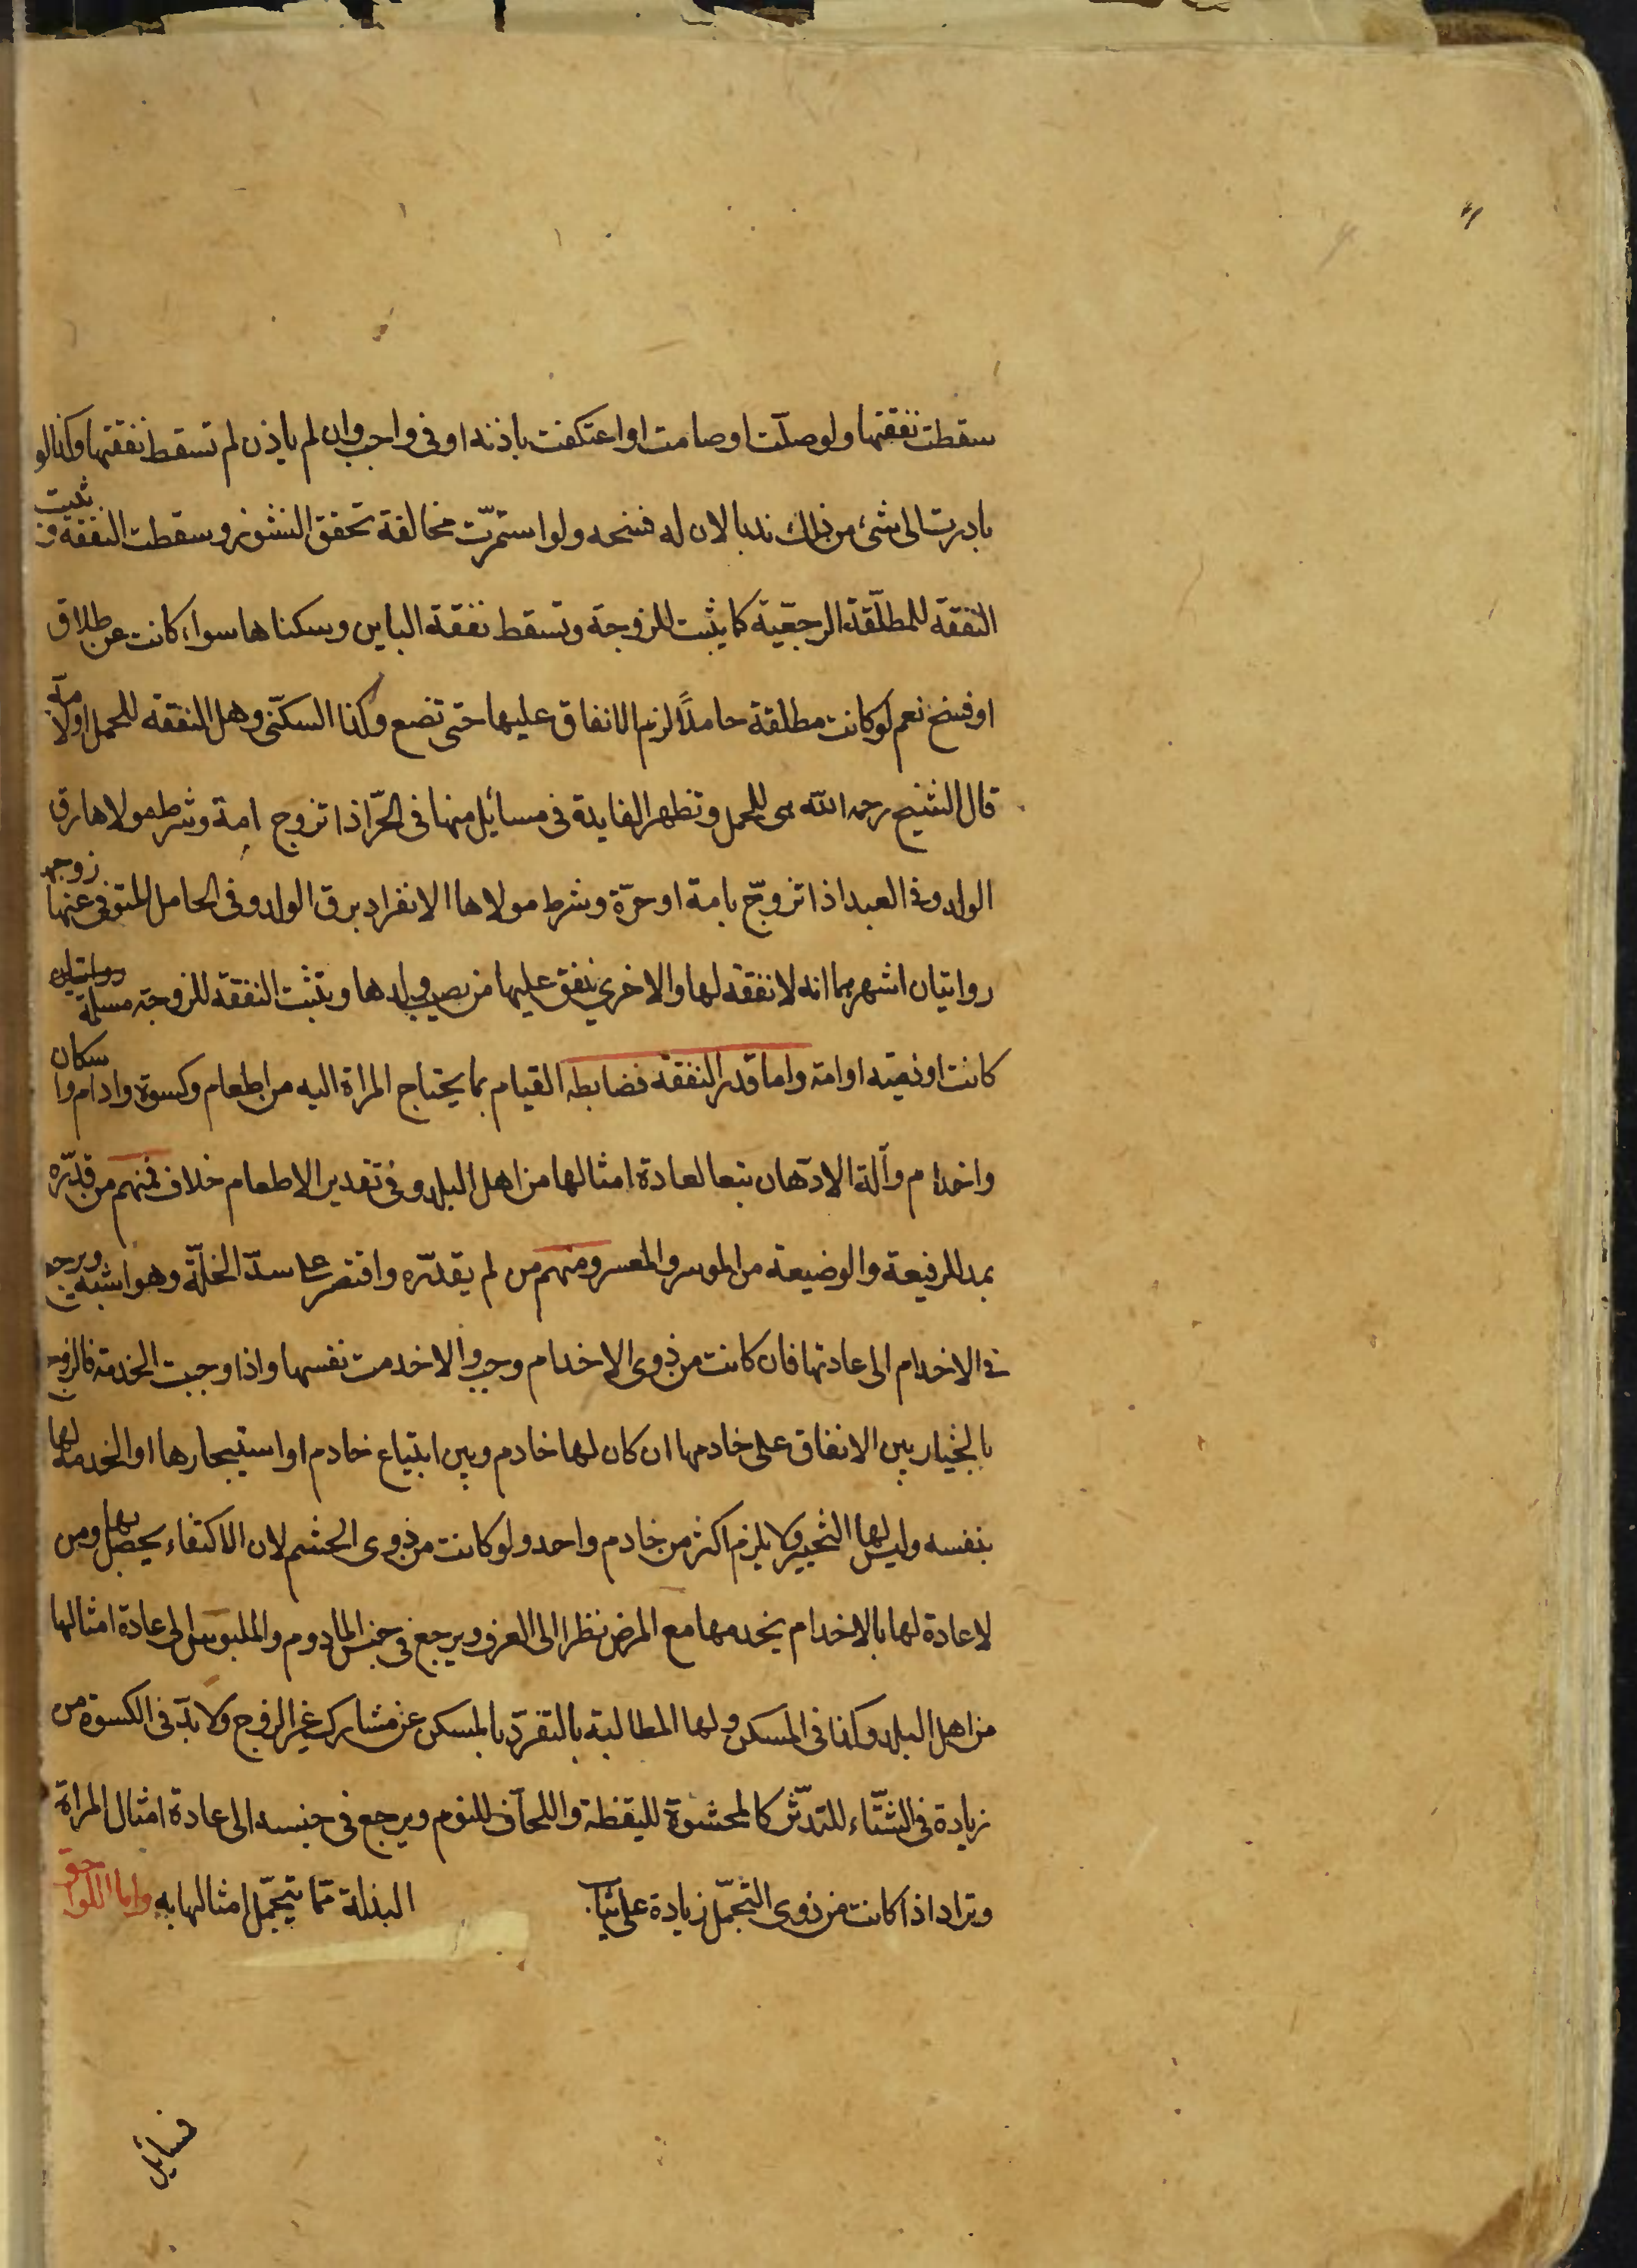 سقطت نفقتها ولو صلت او صامت او اعتكفت باذنه او فى واجب وان لم ياذن لم تسقط نفقتها وكذا لو
بادرت الى شئ من ذلك ندبا لان له فسخه ولو استمرّت مخالفة تحقق النشوز وسقطت النفقة وتثبت
النفقة للمطلّقة الرجعّية كما يثبت للزوجة وتسقط نفقة الباين وسكناها سواء كانت عن طلاق
او فسخ نعم لو كانت مطلقة حاملاً لزم الانفاق عليها حتى تضع وكذا السكنى وهل النفقه للحمل او لامّه
قال الشيخ رحمه الله هى للحمل وتظهر الفايدة فى مسائل منها فى الحّر اذا تزوج امة وشرط مولاها رق
الولد وفى العبد اذا تزوّج بامة او حرّة وشرط مولاها الانفراد برق الولد وفى الحامل المتوفى عنها زوجها
روايتان اشهرهما انه لا نفقة لها والاخرى ينفق عليها من نصيب ولدها ويثبت النفقة للزوجة مسلمة روايتان
كانت او ذميّه او امة واما قدر النفقه فضابطه القيام بما يحتاج المراة اليه من اطعام وكسوة وادام واسكان
واخدام وآلة الادّهان تبعا لعادة امثالها من اهل البلد وفى تقدير الاطعام خلاف فمنهم من قدّره
بمد للرفيعة والوضيعة من الموسر والمعسر ومنهم من لم يقدّره واقتصر على سدّ الخلّة وهو اشبه ويرجع
فى الاخدام الى عادتها فان كانت من ذوى الاخدام وجب والا خدمت نفسها واذا وجبت الخدمة فالزوج
بالخيار بين الانفاق على خادمها ان كان لها خادم وبين ابتياع خادم او استيجارها او الخدمة لها
بنفسه وليس لها التخيير ولا يلزم اكثر من خادم واحد ولو كانت من ذوى الحشم لان الاكتفاء يحصل بها ومن
لا عادة لها بالاخدام يخدمها مع المرض نظرا الى العرف ويرجع فى جنس المادوم والملبوس الى عادة امثالها
من اهل البلد وكذا فى المسكن ولها المطالبة بالتفرّد بالمسكن عن مشاركة غير الزوج ولا بدّ فى الكسوة من
زيادة فى الشتّاء للتدّثر كالمحشوة لليقظة واللحاف للنوم ويرجع فى جنسه الى عادة امثال المراة
وتزاد اذا كانت من ذوى التجمّل زيادة على ثياب البذلة مّما يتجمّل امثالها به واما اللواحق
فسائل